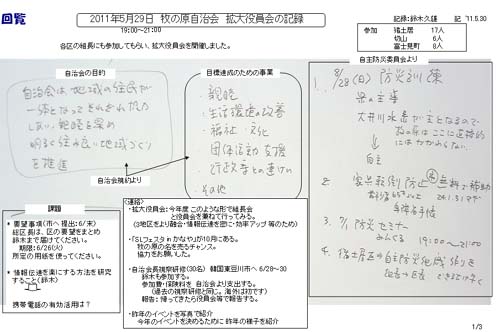 回覧
2011年5月29日 牧の原自治会 拡大役員会の記録
19:00~21:00
記録:鈴木久雄 記 '11.5.30
各区の組長にも参加してもらい、拡大役員会を開催しました。
参加 猪土居 17人
切山 6人
富士見町 8人
自治会の目的
自治会は地域の住民が
一体となってそれぞれ協力
しあい、親睦を深め
明るく住み良い地域づくり
を推進
目標達成のための事業
・親睦
・生活環境の改善
・福祉・文化
・団体活動支援
・行政等との連けい
・その他
自治会規約より
自主防災委員会より
1. 8/28(日)防災訓練
県の主導
大井川水系が主となるので
牧の原はここに直接的
にはかかわらない。
自主
2. 家具転倒防止 無料で補助
24.1.31まで
3. 7/1 防災セミナー
みんくる 19:00~21:00
4. 猪土居区の自主防災地域割りを
課題
* 要望事項(市へ提出:6/末)
総区長は、区の要望をまとめ
鈴木まで届けてください。
期限:6/26(火)
所定の用紙を使ってください。
* 情報伝達を楽にする方法を研究
すること(鈴木)
携帯電話の有効活用は?
<連絡>
・拡大役員会:今年度 このような形で組長会
と役員会を兼ねて行ってみる。
(3地区をより融合・情報伝達を密に・効率アップ 等のため)
・「SLフェスタinかなや」が10月にある。
牧の原の名を売るチャンス。
協力をお願いした。
・自治会長視察研修(30名) 韓国東豆川市へ 6/28~30
鈴木も参加する。
参加費・保険料を 自治会より支出する。
(過去の視察研修と同じ。海外は初です)
報告:帰ってきたら役員会等で報告する。
・昨年のイベントを写真で紹介
今年のイベントを決めるために 昨年の様子を紹介
1/3